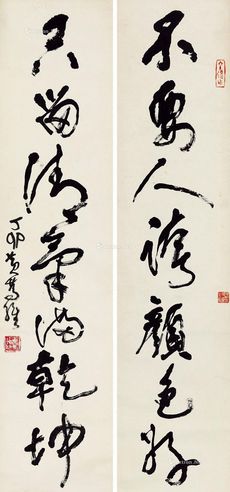 不要人誇顏色好
只留清氣滿乾坤
丁卯黃葉緣